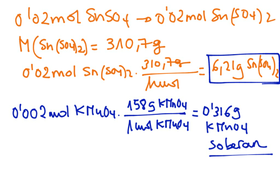 0'02mol SnSO4 → 0'02mol Sn(SO4)2
M(Sn(SO4)2) = 310,7g
0'02mol Sn(SO4)2 · 310,7g / 1mol = 6,21g Sn(SO4)2
0'002mol KMnO4 · 158g KMnO4 / 1mol KMnO4 = 0'316g
KMnO4
Sobran